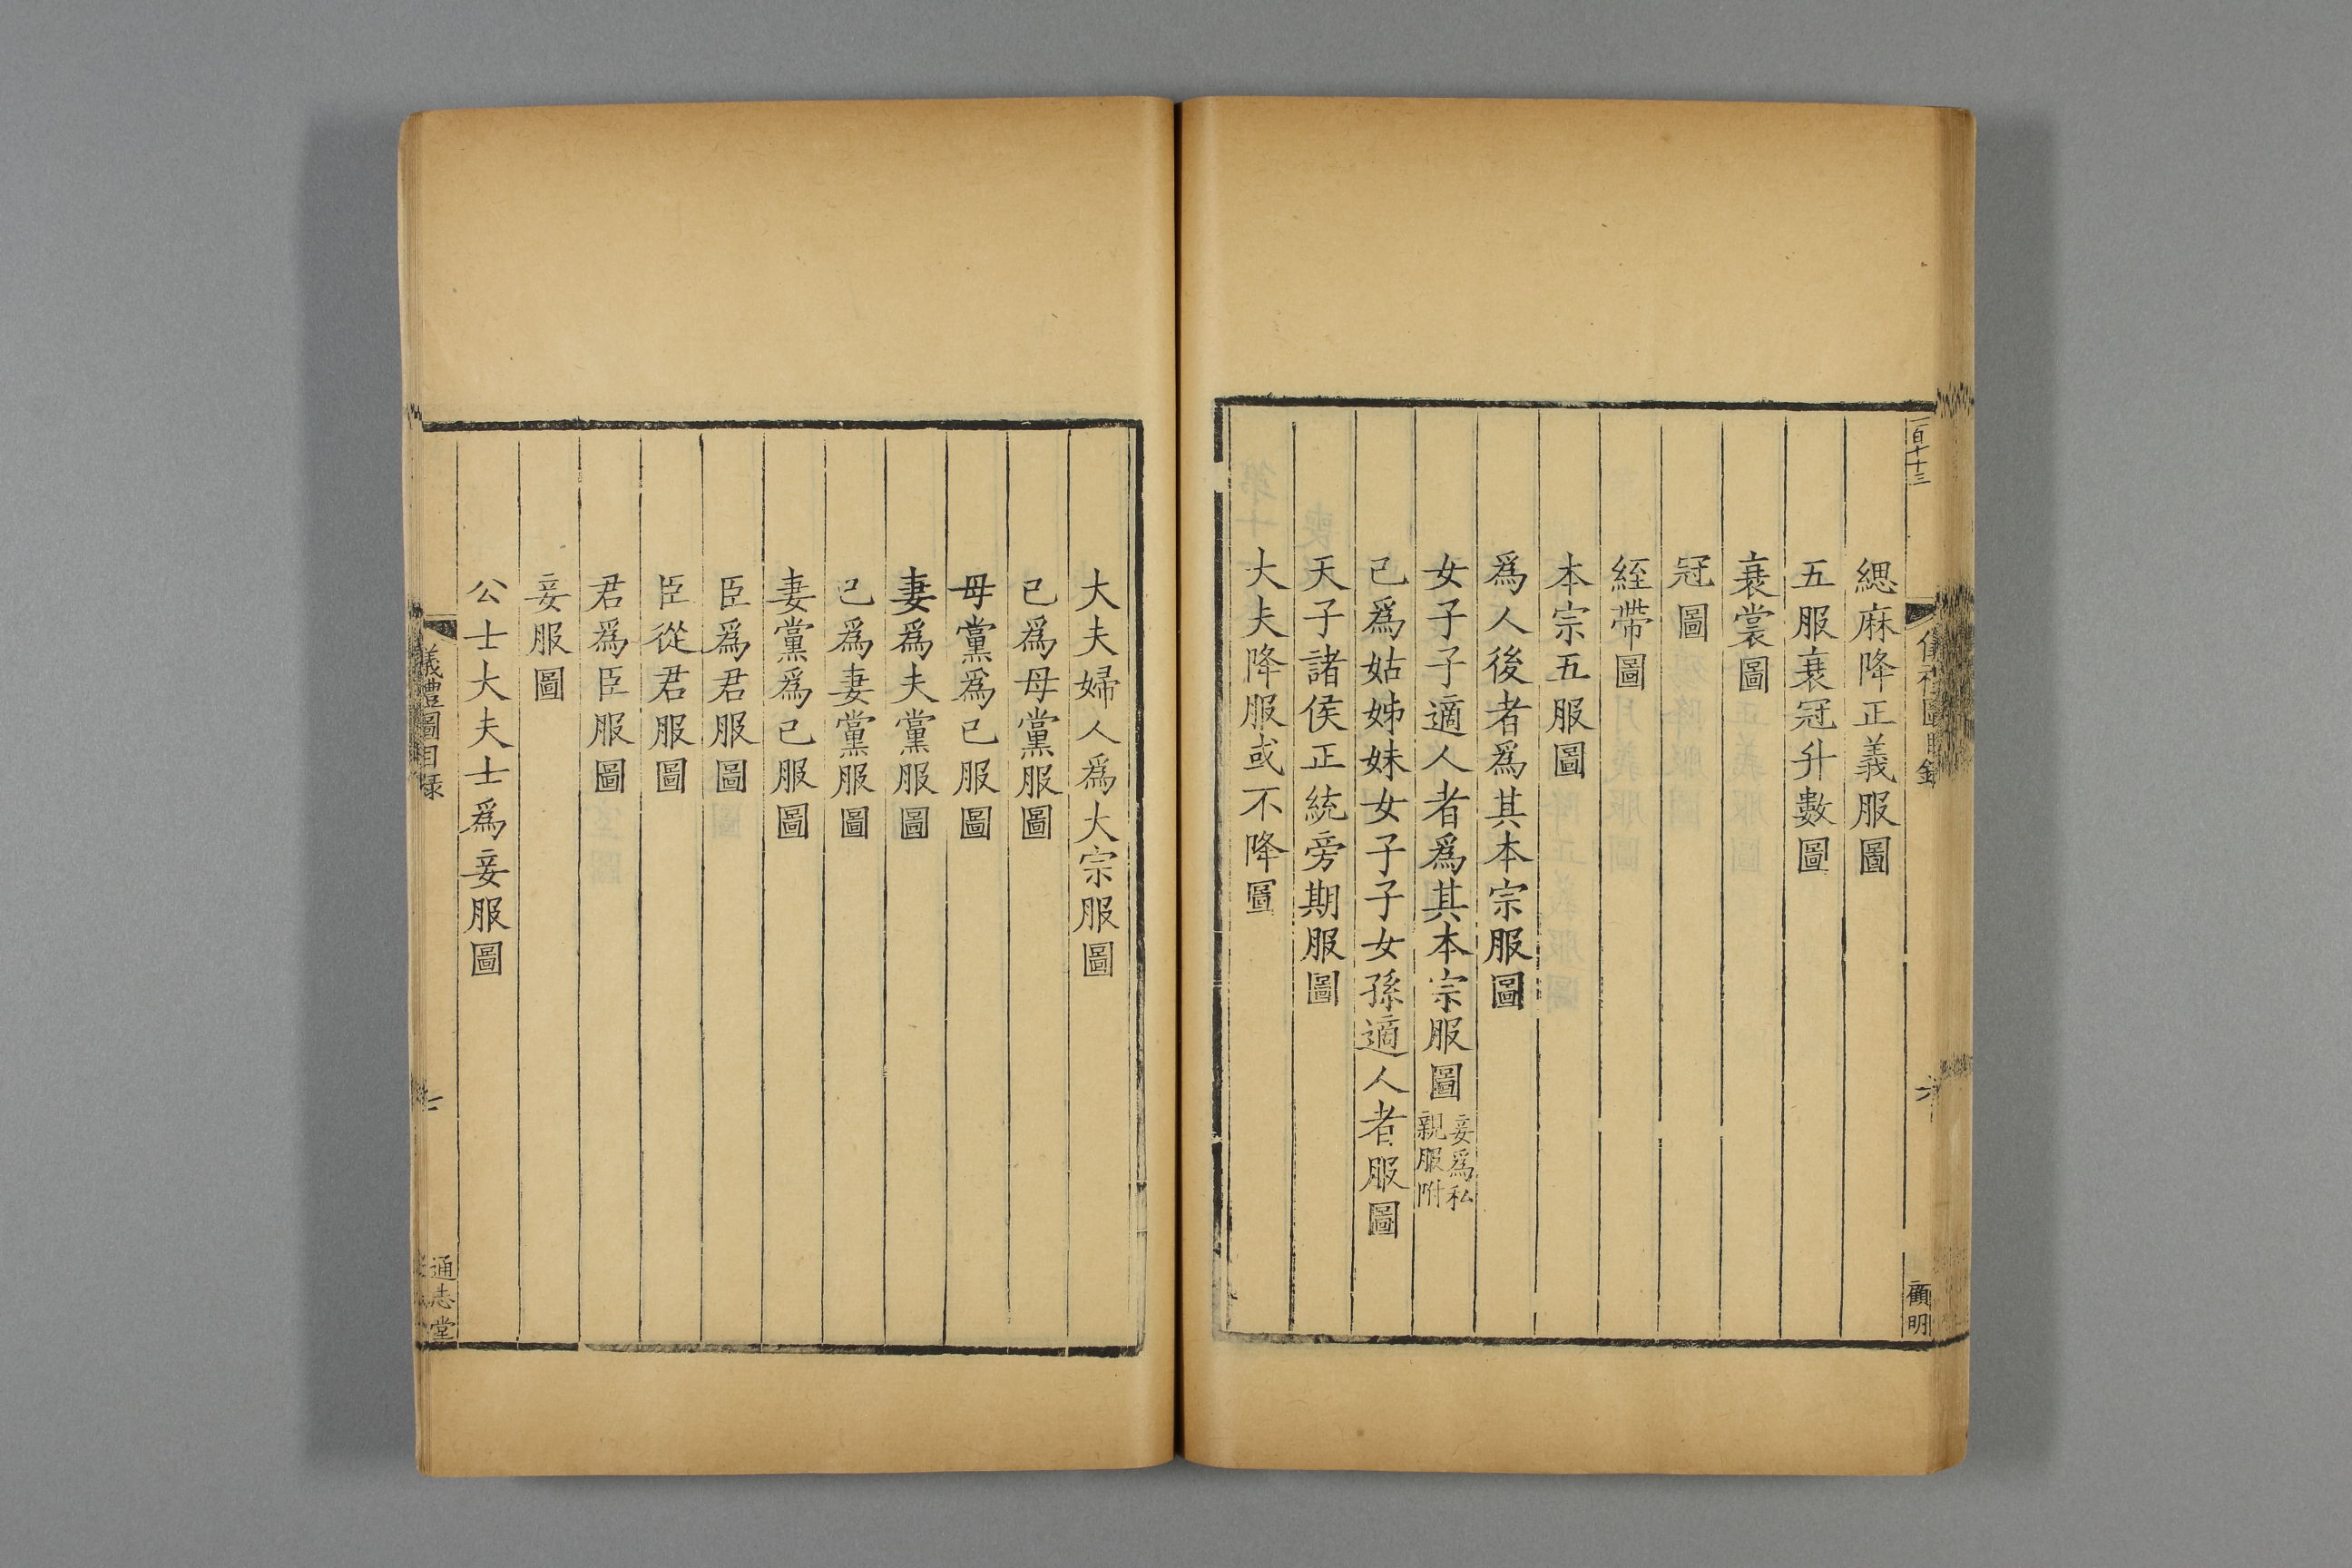 緦麻降正義服圖
五服衰冠升數圖
衰裳圖
冠圖
絰帶圖
本宗五服圖
爲人後者爲其本宗服圖
女子子適人者爲其本宗服圖妾爲私親服附
己爲姑姊妹女子子女孫適人者服圖
天子諸侯正統旁期服圖
大夫降服或不降圖
大夫婦人爲大宗服圖
己爲母黨服圖
母黨爲己服圖
妻爲夫黨服圖
己爲妻黨服圖
妻黨爲己服圖
臣爲君服圖
臣從君服圖
君爲臣服圖
妾服圖
公士大夫士爲妾服圖
儀禮圖目錄
六
顧明
儀禮圖目錄
七
通志堂